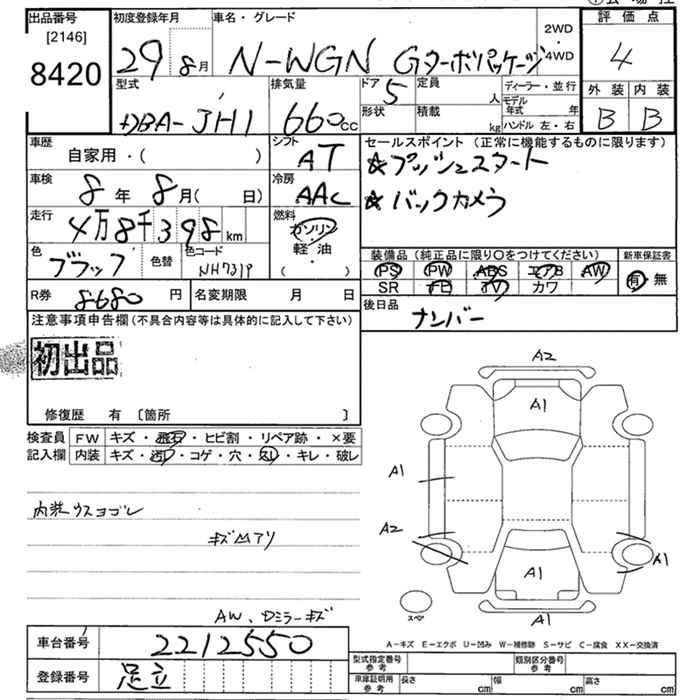 出品番号 初度登録年月 車名・グレード 2WD 評価点
[2146] 29 8月 N-WGN Gターボパッケージ 4WD 4
8420
型式 排気量 ドア 定員 ディーラー・並行 外装 内装
DBA-JH1 660cc 5 人 モデル年式 年 B B
形状 積載 kg ハンドル 左・右
車歴 シフト セールスポイント (正常に機能するものに限ります)
自家用・( ) AT ☆プッシュスタート
車検 8年 8月( 日) 冷房 AAC ☆バックカメラ
走行 4万8千398km 燃料
ガソリン
軽油
( )
色 ブラック 色替 色コード NH731P
装備品 (純正品に限り○をつけてください) 新車保証書
PS PW ABS エアB AW 有 無
SR TV カワ
R券 8680円 名変期限 月 日 後日品
ナンバー
注意事項申告欄(不具合内容等は具体的に記入して下さい)
初出品
修復歴 有 〔箇所 〕
検査員 FW キズ・飛石・ヒビ割・リペア跡・×要
記入欄 内装 キズ・コゲ・穴・スレ・キレ・破レ
内装ウスヨゴレ
キズ凹アリ
AW、Dミラーキズ
A2
A1
A1
A2
A1
A1
A1
スペア
A-キズ E-エクボ U-凹み W-補修跡 S-サビ C-腐食 XX-交換済
車台番号 2212550
登録番号 足立
型式指定番号 参考 類別区分番号 参考
車庫証明用 参考 長さ cm 幅 cm 高さ cm